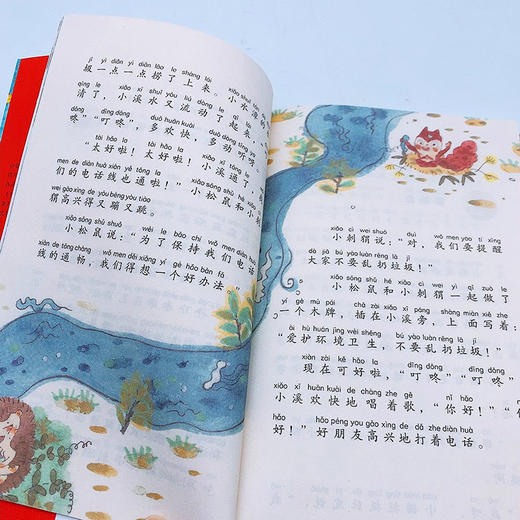 jī yì diǎn yì diǎn lāo le shàng lái
圾一点一点捞了上来。小水沟
qīng le xiǎo xī shuǐ yòu liú dòng le qǐ lái
清了，小溪水又流动了起来，
dōng dīng dōng duō huān kuài duō dòng tīng
咚”“叮咚”，多欢快，多动听呀
tài hǎo la tài hǎo la xiǎo xī tōng le
“太好啦！太好啦！小溪通了，
men de diàn huà xiàn yě tōng la
们的电话线也通啦！”小松鼠和小
wei gāo xìng de yòu bèng yòu tiào
猬高兴得又蹦又跳。
xiǎo sōng shǔ shuō wèi le bǎo chí wǒ men diàn huà
小松鼠说：“为了保持我们电话
xiàn de tōng chàng wǒ men děi xiǎng yí gè hǎo bàn fǎ
线的通畅，我们得想一个好办法
xiǎo cì wei shuō duì wǒ men yào tí xǐng
小刺猬说：“对，我们要提醒
dà jiā bú yào luàn rēng lā jī
大家不要乱扔垃圾！”
xiǎo sōng shǔ hé xiǎo cì wei yì qǐ zuò le
小松鼠和小刺猬一起做了
yí gè mù pái chā zài xiǎo xī páng shàng miàn xiě zhe
一个木牌，插在小溪旁，上面写着：
ài hù huán jìng wèi shēng bú yào luàn rēng lā jī
“爱护环境卫生，不要乱扔垃圾！”
xiàn zài kě hǎo la dīng dōng dīng dōng
现在可好啦，“叮咚”“叮咚”
xiǎo xī huān kuài de chàng zhe gē nǐ hǎo
小溪欢快地唱着歌，“你好！”“
hǎo hǎo péng you gāo xìng de dǎ zhe diàn huà
好！”好朋友高兴地打着电话。